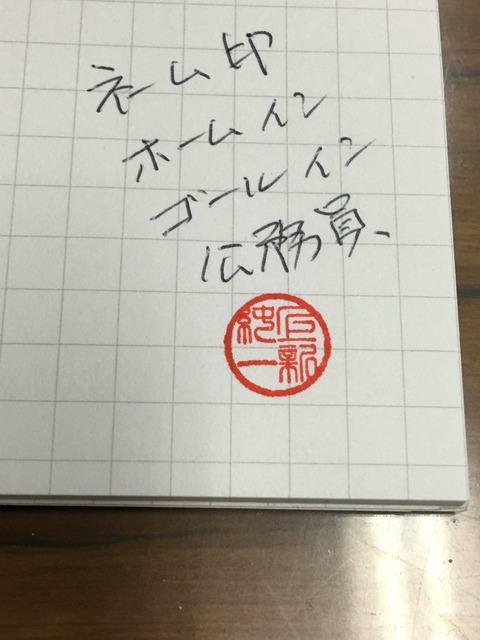 ネーム印
ホームイン
ゴールイン
公務員、
純一